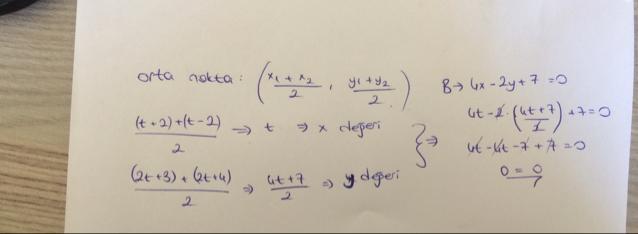 orta nokta: ( (x₁ + x₂)/2 , (y₁ + y₂)/2 )
(t+2)+(t-2)/2 → t ⇒ x değeri
(2t+3) + (2t+4)/2 ⇒ (4t+7)/2 ⇒ y değeri
} ⇒
B → 4x - 2y + 7 = 0
4t - 2 · (4t+7)/2 + 7 = 0
4t - 4t - 7 + 7 = 0
0 = 0